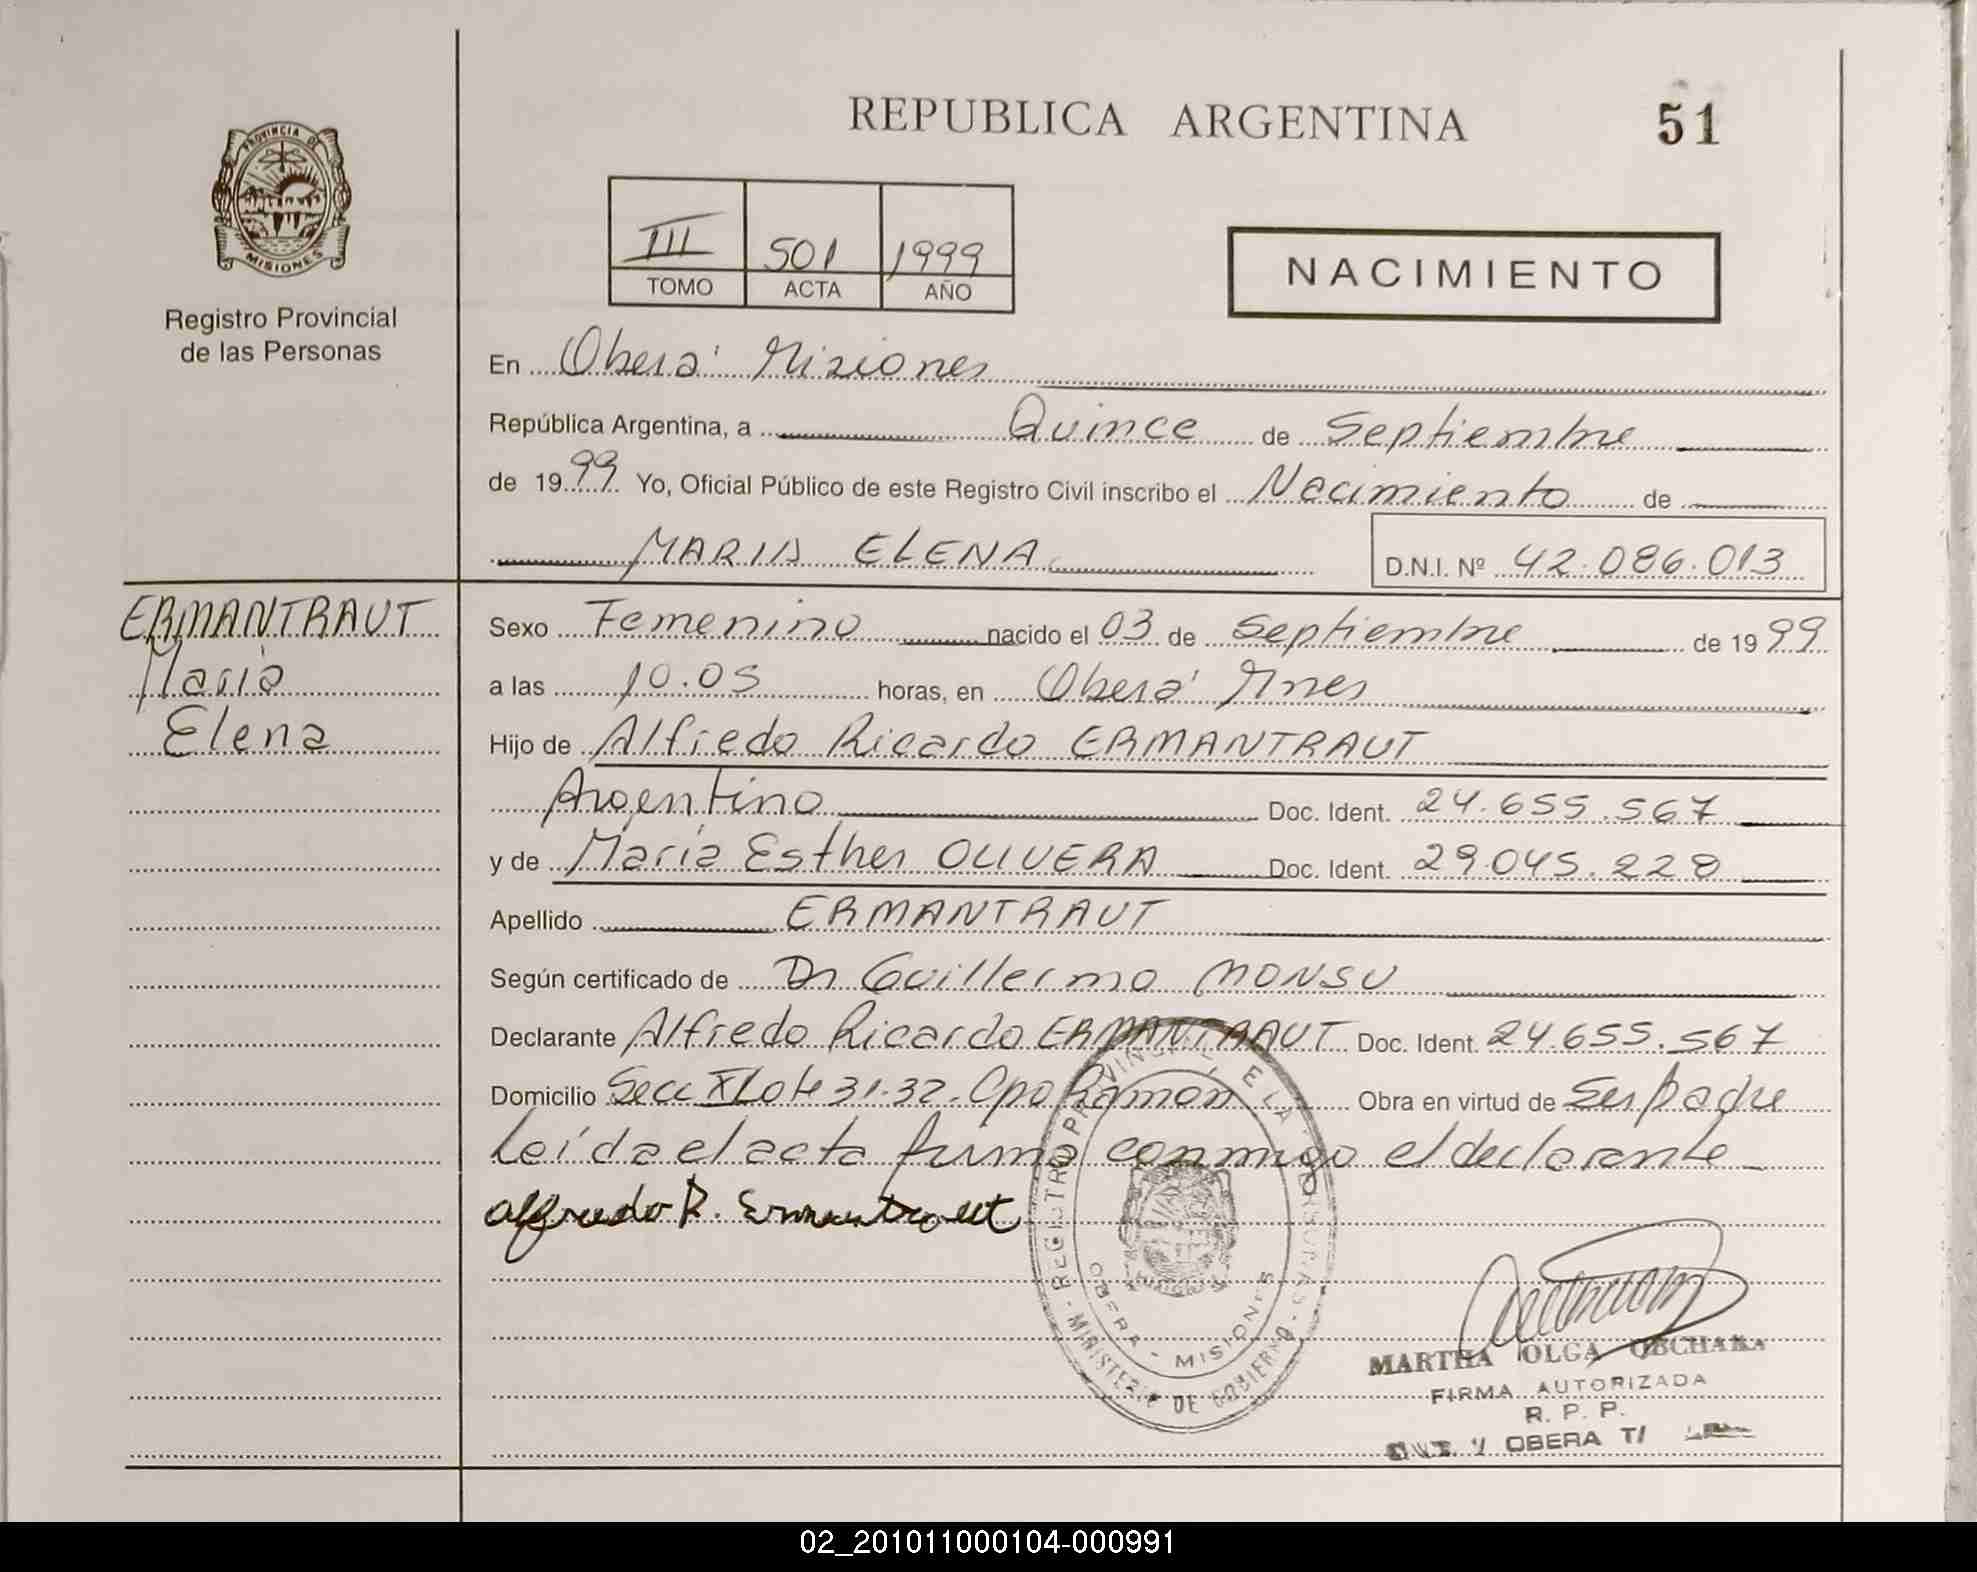 REPUBLICA ARGENTINA
51
PROVINCIA DE
MISIONES
Registro Provincial
de las Personas
III 501 1999
TOMO ACTA AÑO
NACIMIENTO
En Oberá Misiones
República Argentina, a Quince de Septiembre
de 1999 Yo, Oficial Público de este Registro Civil inscribo el Nacimiento de
MARIA ELENA D.N.I. Nº 42.086.013
ERMANTRAUT
Maria
Elena
Sexo Femenino nacido el 03 de Septiembre de 1999
a las 10.05 horas, en Oberá Mnes
Hijo de Alfredo Ricardo ERMANTRAUT
Argentino Doc. Ident. 24.655.567
y de María Esther OLIVERA Doc. Ident. 29.045.228
Apellido ERMANTRAUT
Según certificado de Dr Guillermo MONSU
Declarante Alfredo Ricardo ERMANTRAUT Doc. Ident. 24.655.567
Domicilio Secc XI Lote 31-32. Cpo Ramón Obra en virtud de ser padre
Leída el acta firma conmigo el declarante
Alfredo R. Ermantraut
REGISTRO PROVINCIAL DE LAS PERSONAS
MINISTERIO DE GOBIERNO
OBERA - MISIONES
MARTHA OLGA OBCHAKA
FIRMA AUTORIZADA
R. P. P.
OBERA
02_201011000104-000991